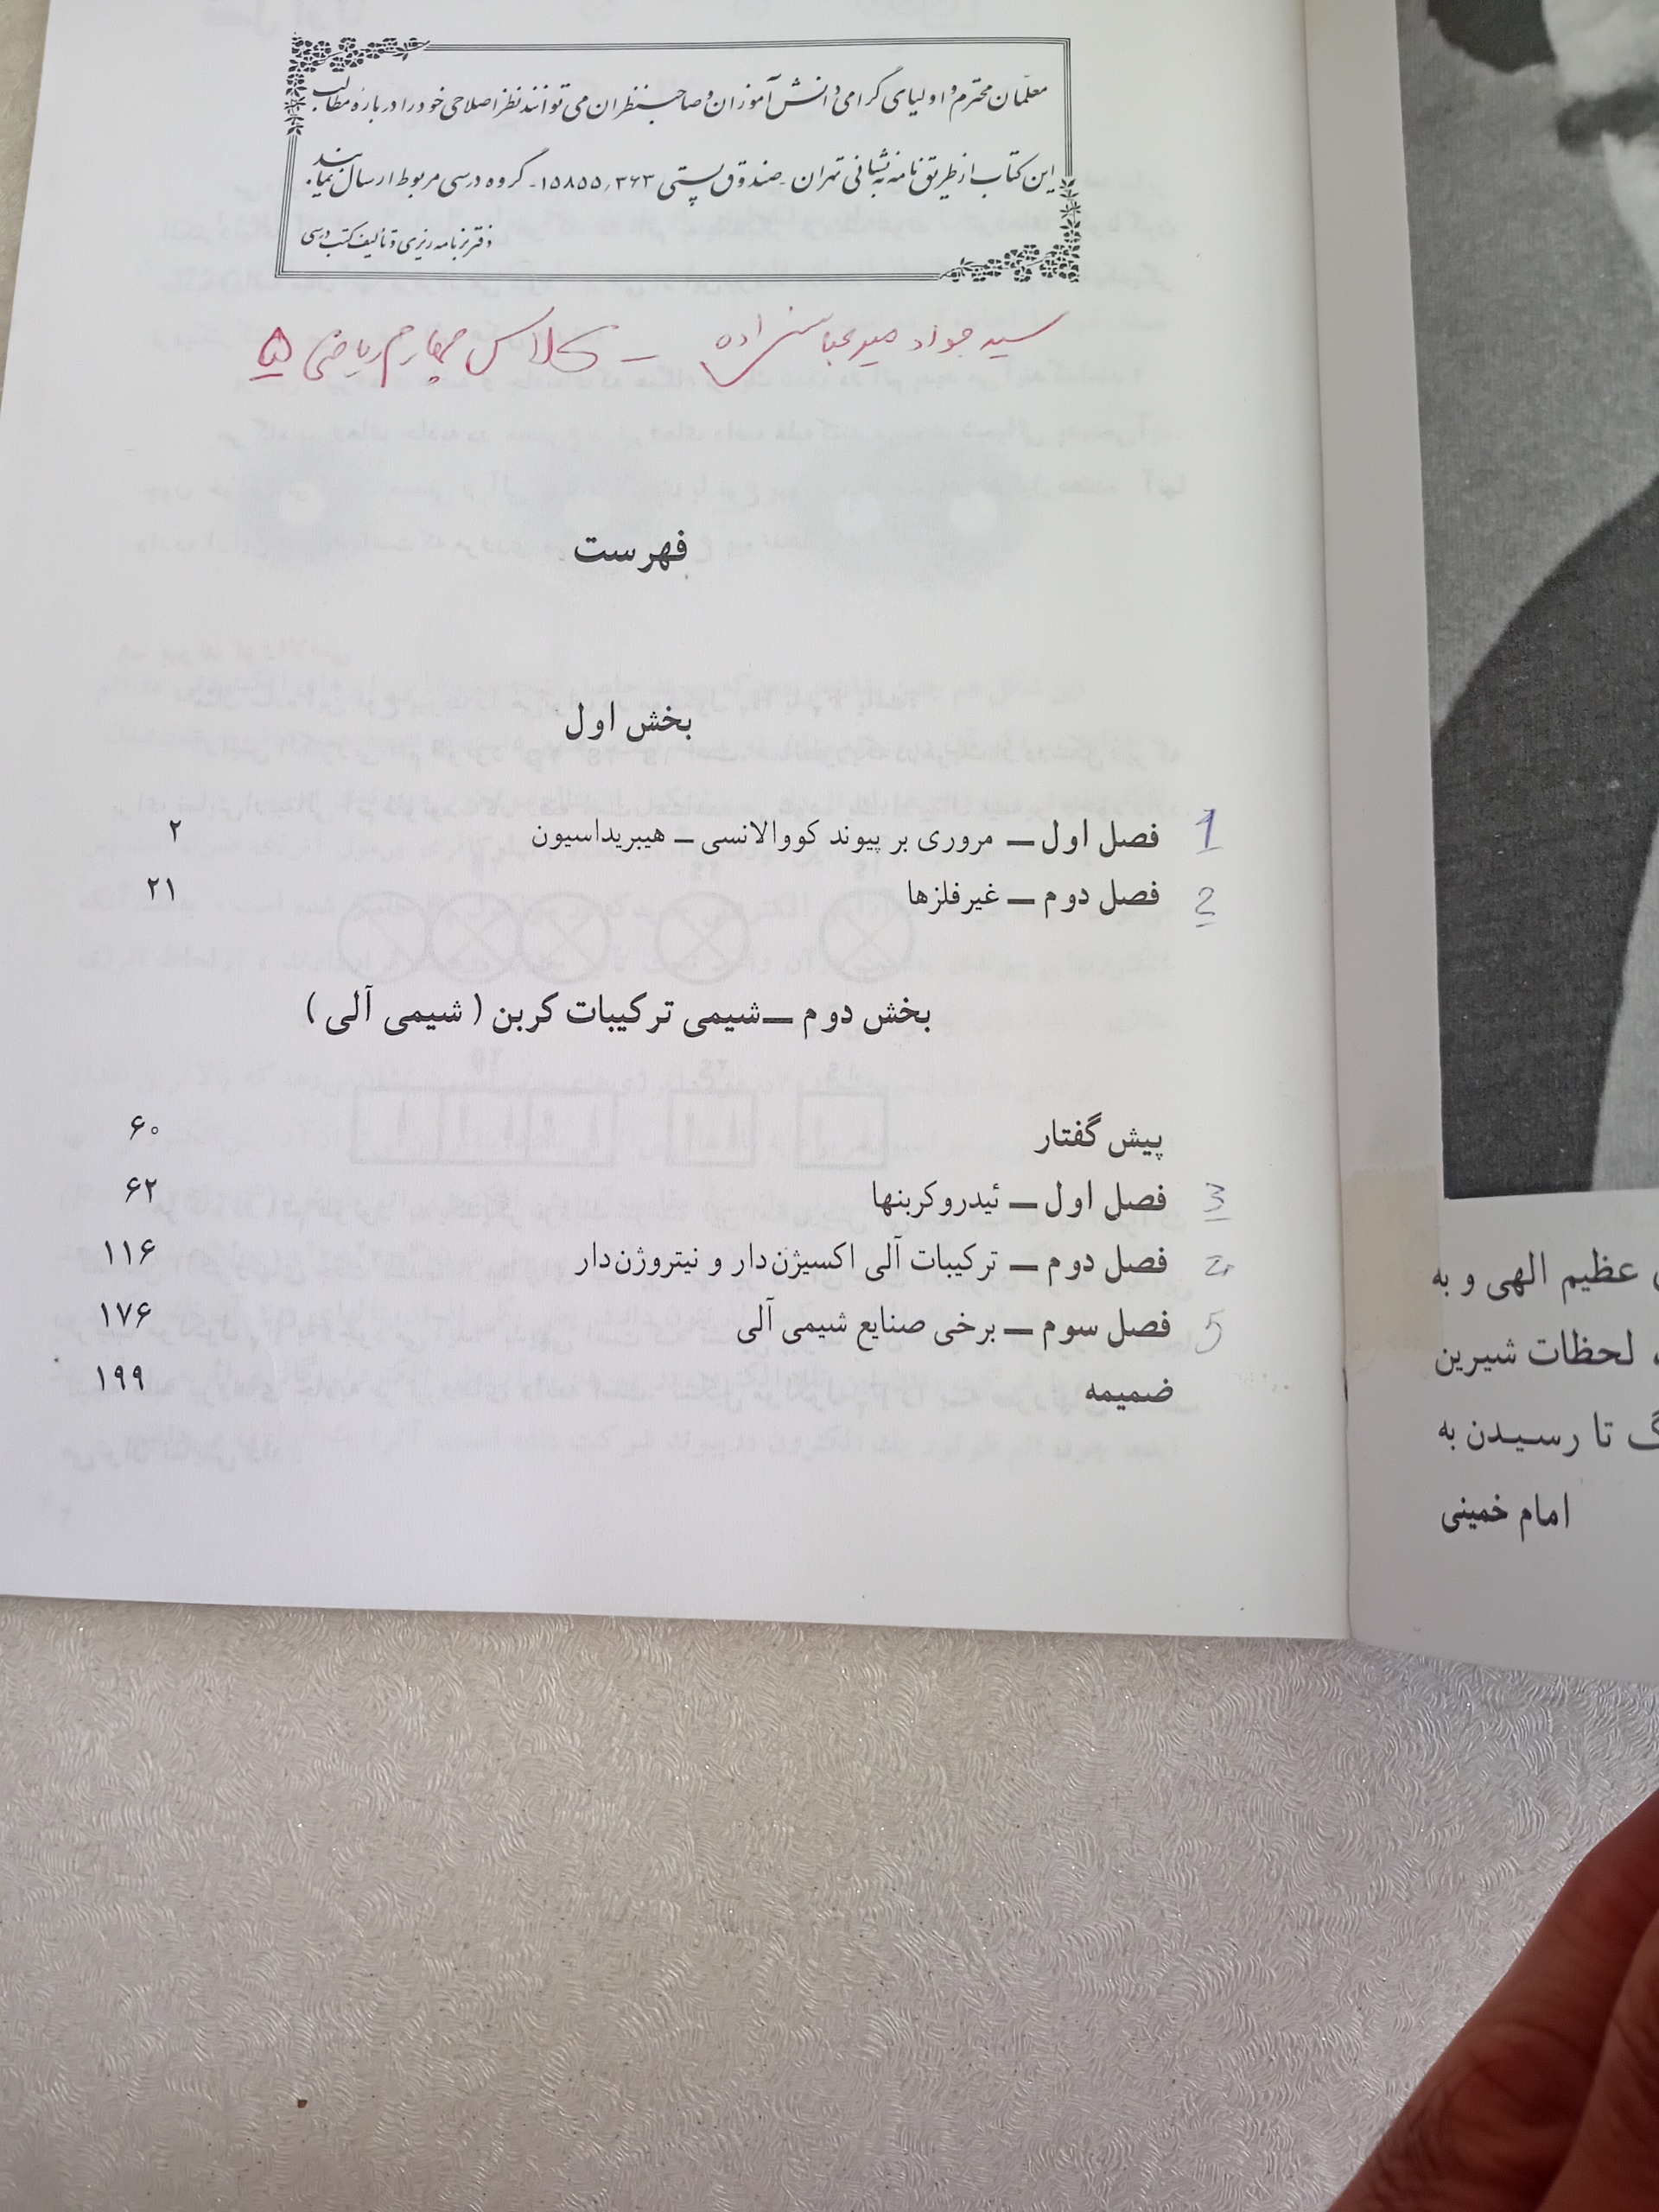 معلمان محترم و اولیای گرامی دانش‌آموزان و صاحبنظران می‌توانند نظر اصلاحی خود را درباره مطالب
این کتاب از طریق نامه به نشانی تهران - صندوق پستی ۱۵۸۵۵,۳۶۳ - گروه درسی مربوط ارسال نمایند.
دفتر برنامه‌ریزی و تألیف کتب درسی
سید جواد میرعباس زاده – کلاس چهارم ریاضی ۵
فهرست
بخش اول
1 فصل اول — مروری بر پیوند کووالانسی – هیبریداسیون ۲
2 فصل دوم — غیرفلزها ۲۱
بخش دوم — شیمی ترکیبات کربن ( شیمی آلی )
پیش گفتار ۶۰
3 فصل اول — ئیدروکربنها ۶۲
فصل دوم — ترکیبات آلی اکسیژن‌دار و نیتروژن‌دار ۱۱۶
5 فصل سوم — برخی صنایع شیمی آلی ۱۷۶
ضمیمه ۱۹۹
عظیم الهی و به
لحظات شیرین
تا رسیدن به
امام خمینی